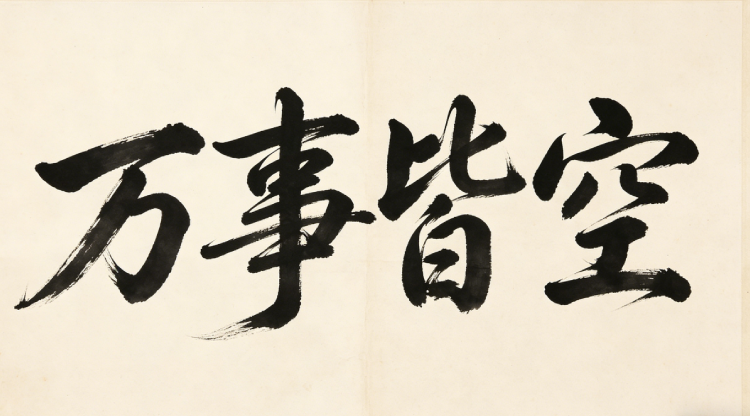 万事皆空